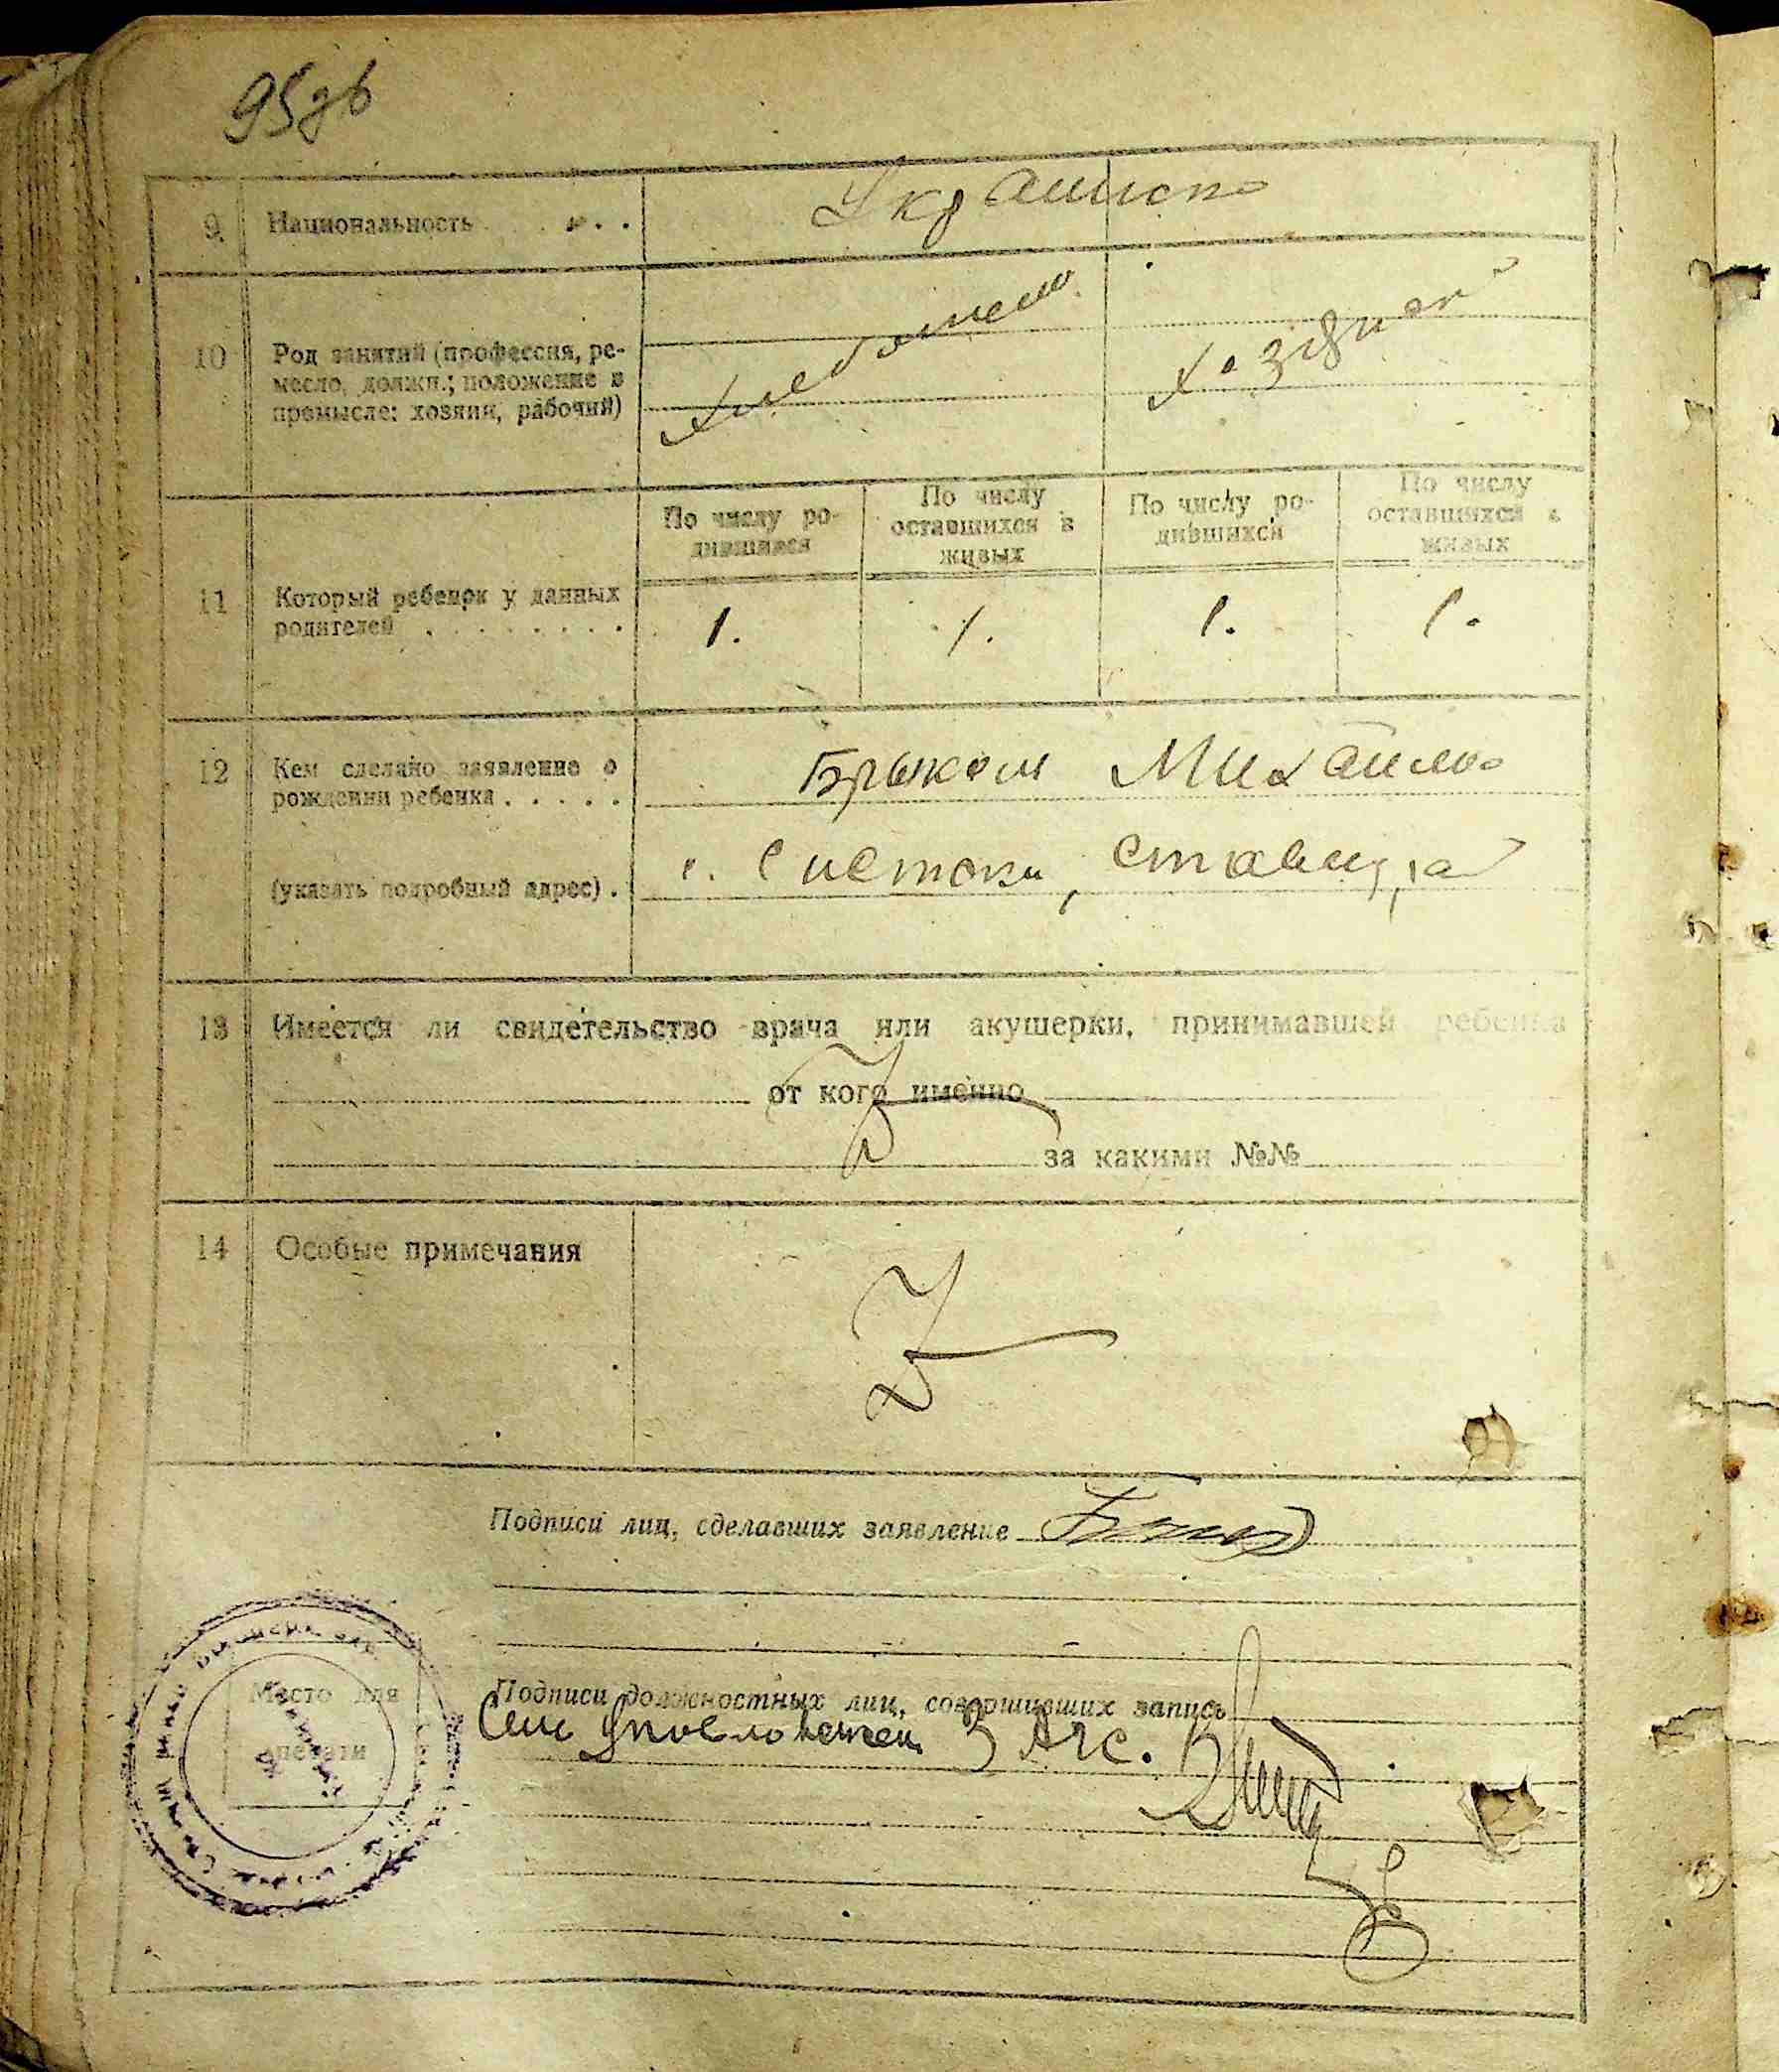 95зв
9 Национальность . . . .
Украинск
10 Род занятий (профессия, ре-
месло, должн.; положение в
промысле: хозяин, рабочий)
По числу ро-
дившихся
По числу
оставшихся в
живых
По числу ро-
дившихся
По числу
оставшихся в
живых
11 Который ребенок у данных
родителей . . . . . . . .
1. 1. 1. 1.
12 Кем сделано заявление о
рождении ребенка . . . . .
Брыком Михайло
(указать подробный адрес) .
с.
13 Имеется ли свидетельство врача или акушерки, принимавшей ребенка
от кого именно
за какими №№
14 Особые примечания
Подписи лиц, сделавших заявление
Место для
печати
Подписи должностных лиц, совершивших запись
ЗАГС.